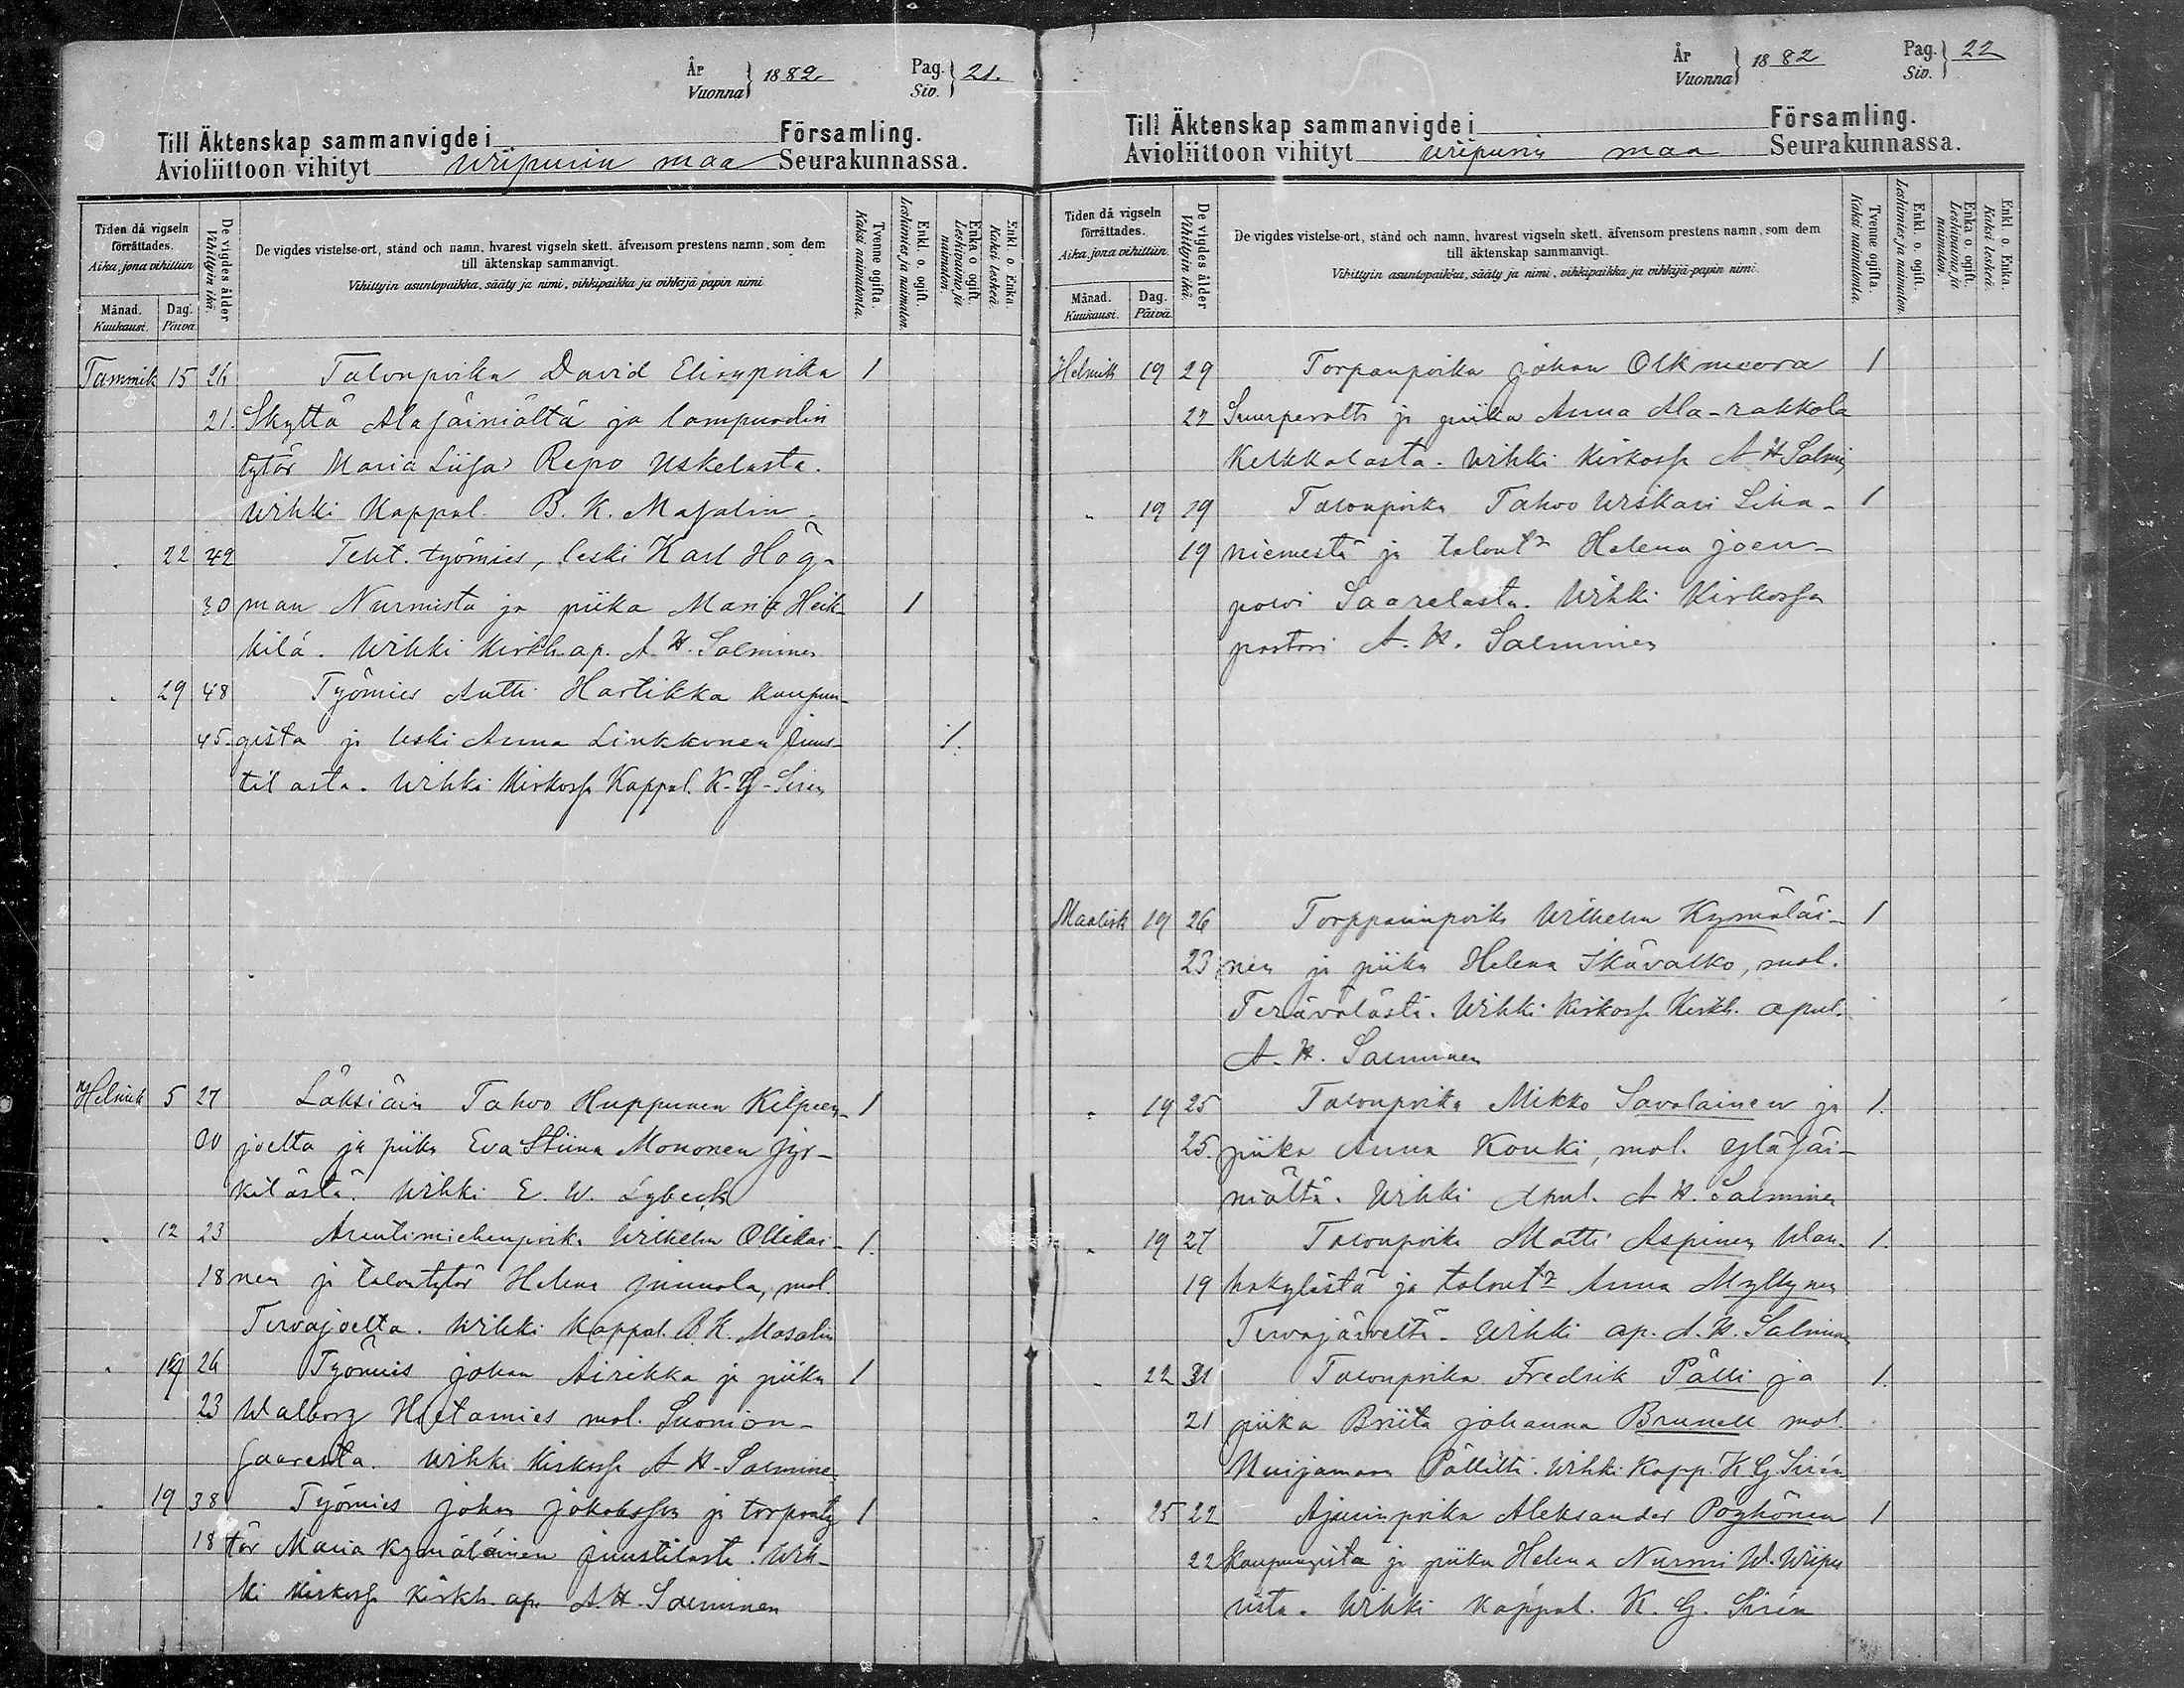 År
Vuonna } 1882. Pag.
Siv. } 21.
Till Äktenskap sammanvigde i Församling.
Avioliittoon vihityt Wiipurin maa Seurakunnassa.
Tiden då vigseln förrättades.
Aika, jona vihittiin
Månad.
Kuukausi.
Dag.
Päivä
De vigdes ålder
Vihittyin ikä.
De vigdes vistelse-ort, stånd och namn, hvarest vigseln skett, äfvensom prestens namn, som dem
till äktenskap sammanvigt.
Vihittyin asuntopaikka, sääty ja nimi, vihkipaikka ja vihkijä papin nimi
Tvenne ogifta.
Kaksi naimatonta.
Enkl. o. ogift.
Leskimies ja naimaton.
Enka o. ogift.
Leskivaimo ja naimaton.
Enkl. o. Enka.
Kaksi leskeä.
Tammik 15 26 Talonpoika David Elianpoika 1
21. Skyttä Alasäiniältä ja lampuodin
tytär Maria Liisa Repo Uskelasta.
Wihki Kappal. B. K. Masalin.
" 22 42 Teht. työmies, leski Karl Hög-
30 man Nurmista ja piika Maria Heik- 1
kilä. Wihki Kirkh. ap. A. H. Salminen
" 29 48 Työmies Antti Hartikka kaupun-
45. gista ja leski Anna Linkkonen Juus- 1.
tilasta. Wihki Kirkossa Kappal. K. G. Siren
Helmik 5 27 Läksiäin Tahvo Huppunen Kilpeen- 1
joelta ja piika Eva Stiina Mononen Jyr-
kilästä. Wihki E. W. Lybeck
" 12 23 Wilhelm Ollikai- 1.
18 nen ja talontytär Helena mol.
Tervajoelta. Wihki Kappal. B. K. Masalin
" 19 26 Työmies Johan Airikka ja piika 1
23 Walborg Hietamies mol. Suomion-
saaresta. Wihki Kirkossa A H. Salminen
" 19 38 Työmies Johan Jakobsson ja torpanty 1
18 tär Maria Kymäläinen Juustilasta. Wih-
ki Kirkossa Kirkh. ap. A. H. Salminen
År
Vuonna } 1882 Pag.
Siv. } 22
Till Äktenskap sammanvigde i Församling.
Avioliittoon vihityt Wiipurin maa Seurakunnassa.
Tiden då vigseln förrättades.
Aika, jona vihittiin.
Månad.
Kuukausi.
Dag.
Päivä
De vigdes ålder
Vihittyin ikä.
De vigdes vistelse-ort, stånd och namn, hvarest vigseln skett, äfvensom prestens namn, som dem
till äktenskap sammanvigt.
Vihittyin asuntopaikka, sääty ja nimi, vihkipaikka ja vihkijä papin nimi
Tvenne ogifta.
Kaksi naimatonta.
Enkl. o. ogift.
Leskimies ja naimaton.
Enka o. ogift.
Leskivaimo ja naimaton.
Enkl. o. Enka.
Kaksi leskeä.
Helmik 19 29 Torpanpoika Johan Olkinuora 1
22 Suurperolta ja piika Anna Ala-rakkola
Kelkkalasta. Wihki Kirkossa A H Salmin
" 19 29 Talonpoika Tahvo Wiskari Liha- 1
19 niemestä ja talont:r Helena Joen-
polvi Saarelasta. Wihki Kirkossa
pastori A. H. Salminen
Maalisk 19 26 Torpparinpoika Wilhelm Kymäläi- 1
23 nen ja piika Helena Ikävalko, mol.
Terävälästä. Wihki Kirkossa Kirkh. apul.
A. H. Salminen
" 19 25 Talonpoika Mikko Savolainen ja 1.
25. piika Anna Kouki, mol. Yläsäi-
niältä. Wihki Apul. A H. Salminen
" 19 27 Talonpoika Matti Aspinen Wan- 1.
19 hakylästä ja talont:r Anna Myllynen
Tervajärveltä. Wihki ap. A. H. Salminen
" 22 31 Talonpoika Fredrik Pälli ja 1.
21 piika Briita Johanna Brunell mol.
Nuijamaan Pälliltä. Wihki Kapp. K G. Sirén
" 25 22 Ajurinpoika Aleksander Pöyhönen 1
22 kaupungista ja piika Helena Nurmi W. Wiipu
rista. Wihki Kappal. K. G. Sirén